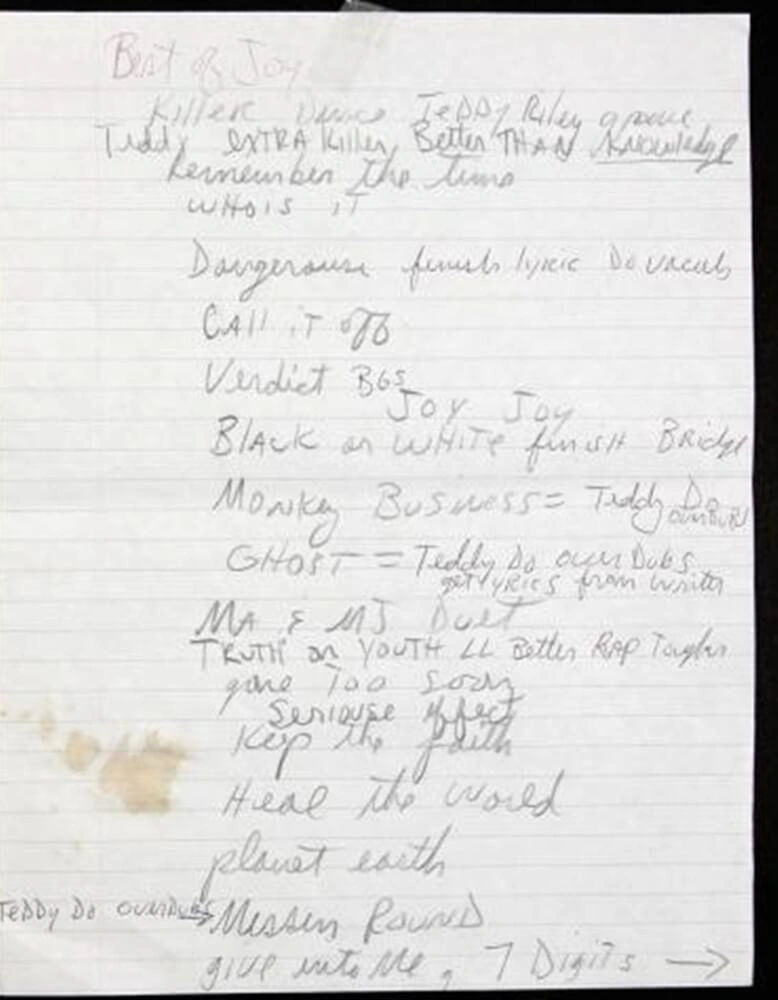 Best of Joy
Killer Dance Teddy Riley groove
Teddy EXTRA Killer, Better THAN Knowledge
Remember the time
WHO IS iT
Dangerouse finish lyric Do vocals
CAll iT off
Verdict BGS
JOY JOY
BlAck or WHITe finisH BRidge
Monkey Business = Teddy Do overDubs
GHOST = Teddy Do overDubs
get lyrics from writer
MA & MJ Duet
TRUTH or YOUTH LL Better RAP Tougher
gone Too soon
Seriouse effect
Keep the faith
Heal the world
planet earth
TeDDy Do overDubs → Messin RounD
give into Me, 7 Digits →